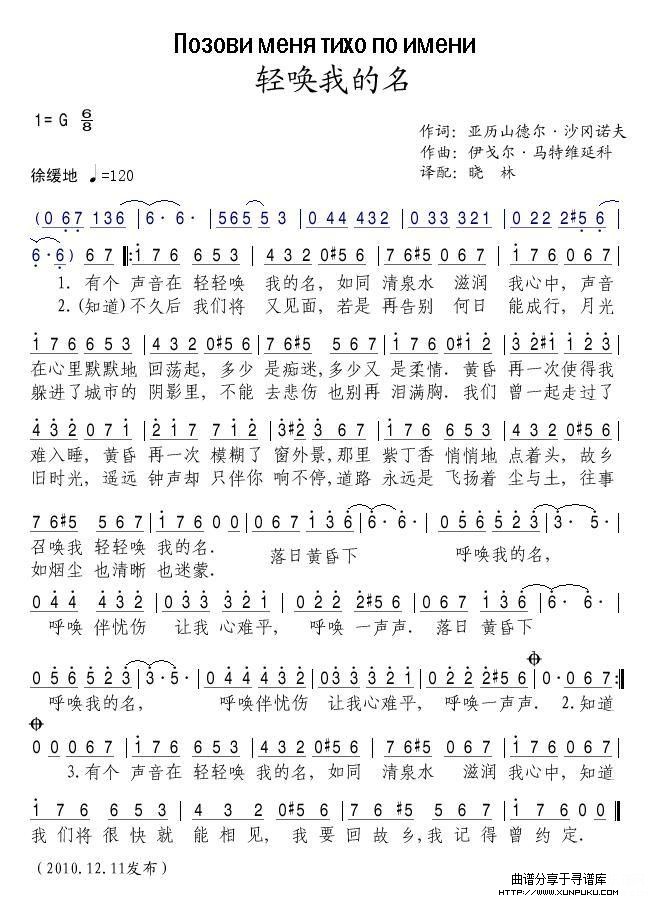 Позови меня тихо по имени
轻唤我的名
1= G 6/8
作词: 亚历山德尔·沙冈诺夫
作曲: 伊戈尔·马特维延科
徐缓地 ♩=120
译配: 晓 林
(0 6 7 1 3 6 | 6· 6· | 5 6 5 5 3 | 0 4 4 4 3 2 | 0 3 3 3 2 1 | 0 2 2 2 #5 6 |
6· 6) 6 7 ‖: 1 7 6 6 5 3 | 4 3 2 0 #5 6 | 7 6 #5 5 6 7 | 1 7 6 0 6 7 |
1. 有个 声音在 轻轻唤 我的名, 如同 清泉水 滋润 我心中, 声音
2. (知道) 不久后 我们将 又见面, 若是 再告别 何日 能成行, 月光
1 7 6 6 5 3 | 4 3 2 0 #5 6 | 7 6 #5 5 6 7 | 1 7 6 0 #1 2 | 3 2 #1 1 2 3 |
在心里默默地 回荡起, 多少 是痴迷, 多少又 是柔情. 黄昏 再一次使得我
躲进了城市的 阴影里, 不能 去悲伤 也别再 泪满胸. 我们 曾一起走过了
4 3 2 0 7 1 | 2 1 7 7 1 2 | 3 #2 3 6 7 | 1 7 6 6 5 3 | 4 3 2 0 #5 6 |
难入睡, 黄昏 再一次 模糊了 窗外景, 那里 紫丁香 悄悄地 点着头, 故乡
旧时光, 遥远 钟声却 只伴你 响不停, 道路 永远是 飞扬着 尘与土, 往事
7 6 #5 5 6 7 | 1 7 6 0 0 | 0 6 7 1 3 6 | 6· 6· | 0 5 6 5 2 3 | 3· 5· |
召唤我 轻轻唤 我的名. 落日黄昏下 呼唤我的名,
如烟尘 也清晰 也迷蒙.
0 4 4 4 3 2 | 0 3 3 3 2 1 | 0 2 2 2 #5 6 | 0 6 7 1 3 6 | 6· 6· |
呼唤 伴忧伤 让我 心难平, 呼唤 一声声. 落日 黄昏下
0 5 6 5 2 3 | 3· 5· | 0 4 4 4 3 2 | 0 3 3 3 2 1 | 0 2 2 2 #5 6 | 0· 0 6 7 :‖
呼唤我的名, 呼唤伴忧伤 让我心难平, 呼唤一声声. 2. 知道
0 0 0 6 7 | 1 7 6 6 5 3 | 4 3 2 0 #5 6 | 7 6 #5 5 6 7 | 1 7 6 0 6 7 |
3. 有个 声音在 轻轻唤 我的名, 如同 清泉水 滋润 我心中, 知道
1 7 6 6 5 3 | 4 3 2 0 #5 6 | 7 6 #5 5 6 7 | 1 7 6 0 0 ‖
我们将很快就 能相见, 我要回故乡, 我记得曾约定.
(2010.12.11发布)
曲谱分享于寻谱库
HTTP://WWW.XUNPUKU.COM